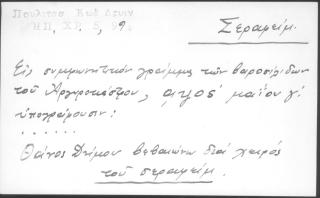 Πουλίτσα Κωδ Δεων
ΗΠ, ΧΡ, 5, 99.
Σεραφείμ.
Εἰς συμφωνητικὸν γράμμα τῶν βαροσλίδων
τοῦ Ἀργυροκάστρου, αψος΄ μαΐου γ΄
ὑπογράφουσιν:
......
Θάνος Δήμου βεβαιώνω διὰ χειρὸς
τοῦ σεραφείμ.